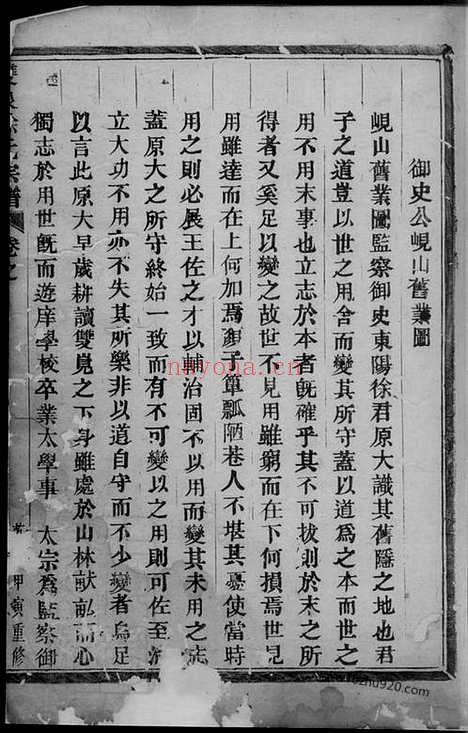 御史公峴山舊業圖
峴山舊業圖監察御史東陽徐君原大識其舊隱之地也君
子之道豈以世之用舍而變其所守蓋以道爲之本而世之
用不用末事也立志於本者旣確乎其不可拔則於末之所
得者又奚足以變之故世不見用雖窮而在下何損焉世見
用雖達而在上何加焉顏子簞瓢陋巷人不堪其憂使當時
用之則必展王佐之才以輔治固不以用而變其未用之志
蓋原大之所守終始一致而有不可變以之用則可佐至治
立大功不用亦不失其所樂非以道自守而不少變者烏足
以言此原大早歲耕讀雙峴之下身雖處於山林献畝而心
獨志於用世旣而遊庠學校卒業太學事 太宗爲監察御
宗譜
卷之
甲寅重修
nayona.cn
zhu920.com